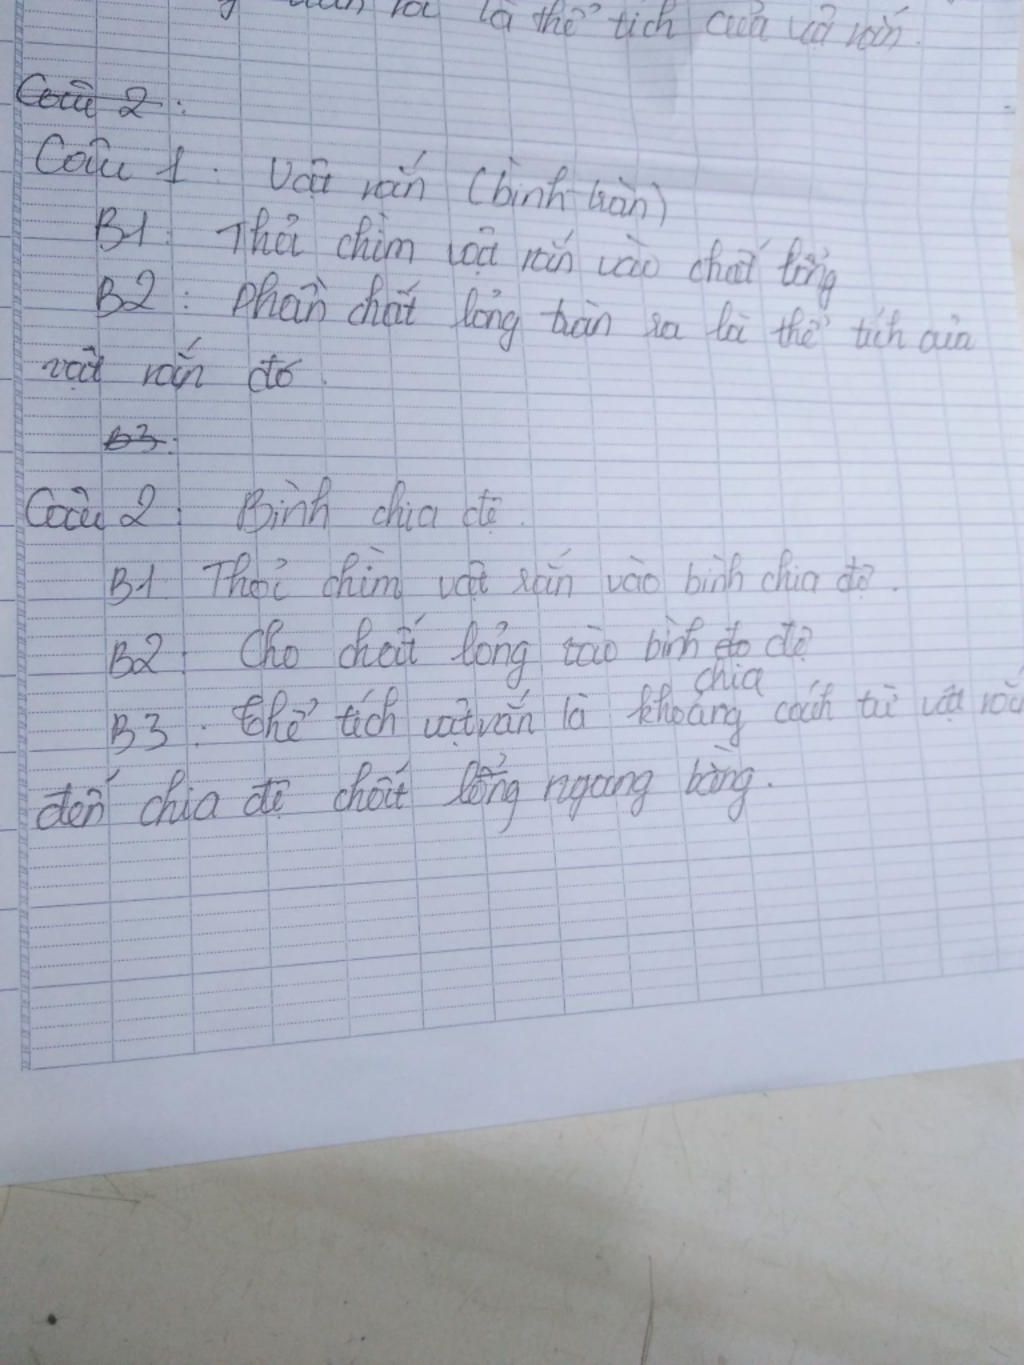 là thể tích của vật rắn.
Câu 2:
Câu 1: Vật rắn (bình tràn)
B1: Thả chìm vật rắn vào chất lỏng
B2: Phần chất lỏng tràn ra là thể tích của
vật rắn đó.
B3:
Câu 2: Bình chia độ.
B1: Thả chìm vật rắn vào bình chia độ.
B2: Cho chất lỏng vào bình đo độ
chia
B3: thể tích vật rắn là khoảng cách từ vật rắn
đến chia độ chất lỏng ngang bằng.